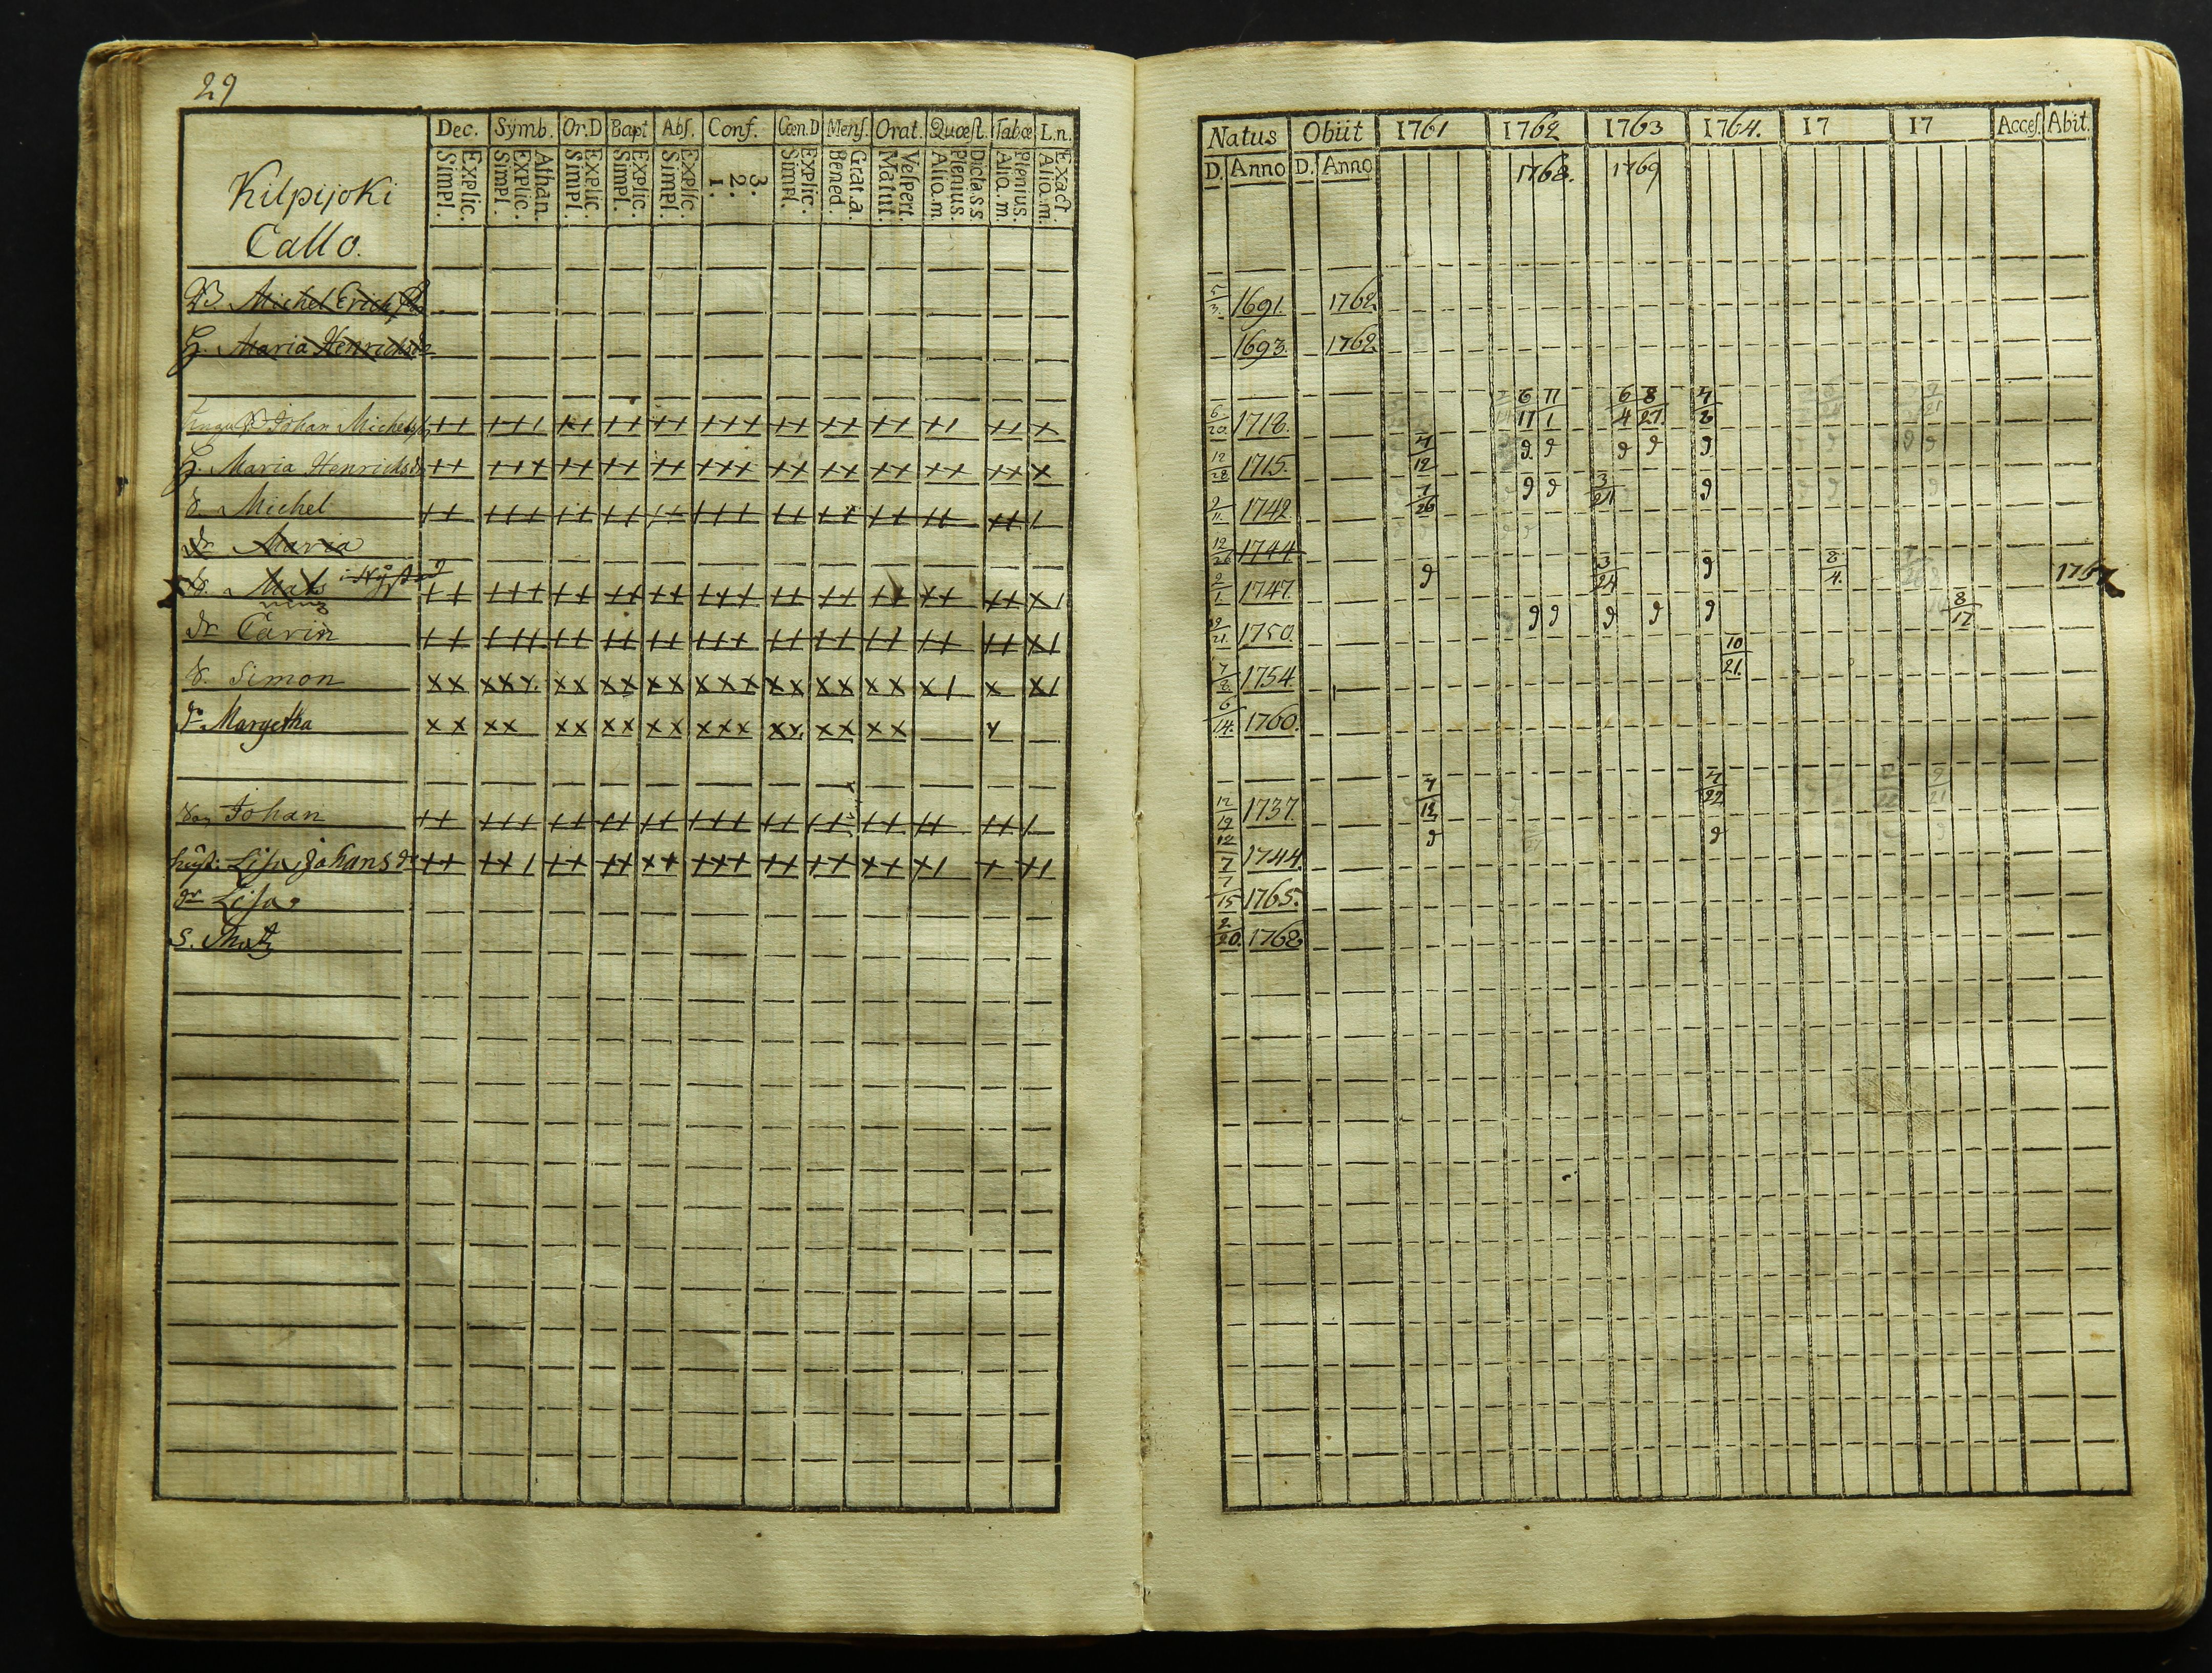 29
Kilpijoki
Callo.
Dec. Symb. Or.D Bapt Abs. Conf. Cœn.D Mens. Orat. Quæst. Tabœ L.n.
Simpl. Explic. Simpl. Explic. Athan. Simpl. Explic. Simpl. Explic. Simpl. Explic. 1. 2. 3. Simpl. Explic. Bened. Grat.a. Matut. Vespert. Alio.m. Plenius. Dicta.s.s Alio.m. Plenius. Alio.m. Exact
Michel Erichs
H. Maria Henrichsdr
Johan Michels
H. Maria Henrichsdr
S. Michel
dr Maria
S. Mats
dr Carin
S. Simon
dr Margetha
Son Johan
hust: Lisa Johansdr
dr Lisa
S. Matz
Natus Obiit 1761 1762 1763 1764. 17 17 Acces. Abit.
D. Anno D. Anno 1768. 1769
5/3. 1691. 1762.
1693. 1762.
6/20. 1718. 6/17 11/1 6/4 8/27. 4/8
12/28. 1715. 4/12 9 9 9 9 9
9/11. 1742 7/26 9 9 3/21 9
12/26 1744
9/1. 1747. 9 3/24 9 8/4. 1767
1750. 9 9 9 9 9 8/17
7/8. 1754. 10/21.
6/14. 1760.
12/19 1737. 4/12 4/22
12/7 1744. 9 9
7/15 1765.
2/20. 1768